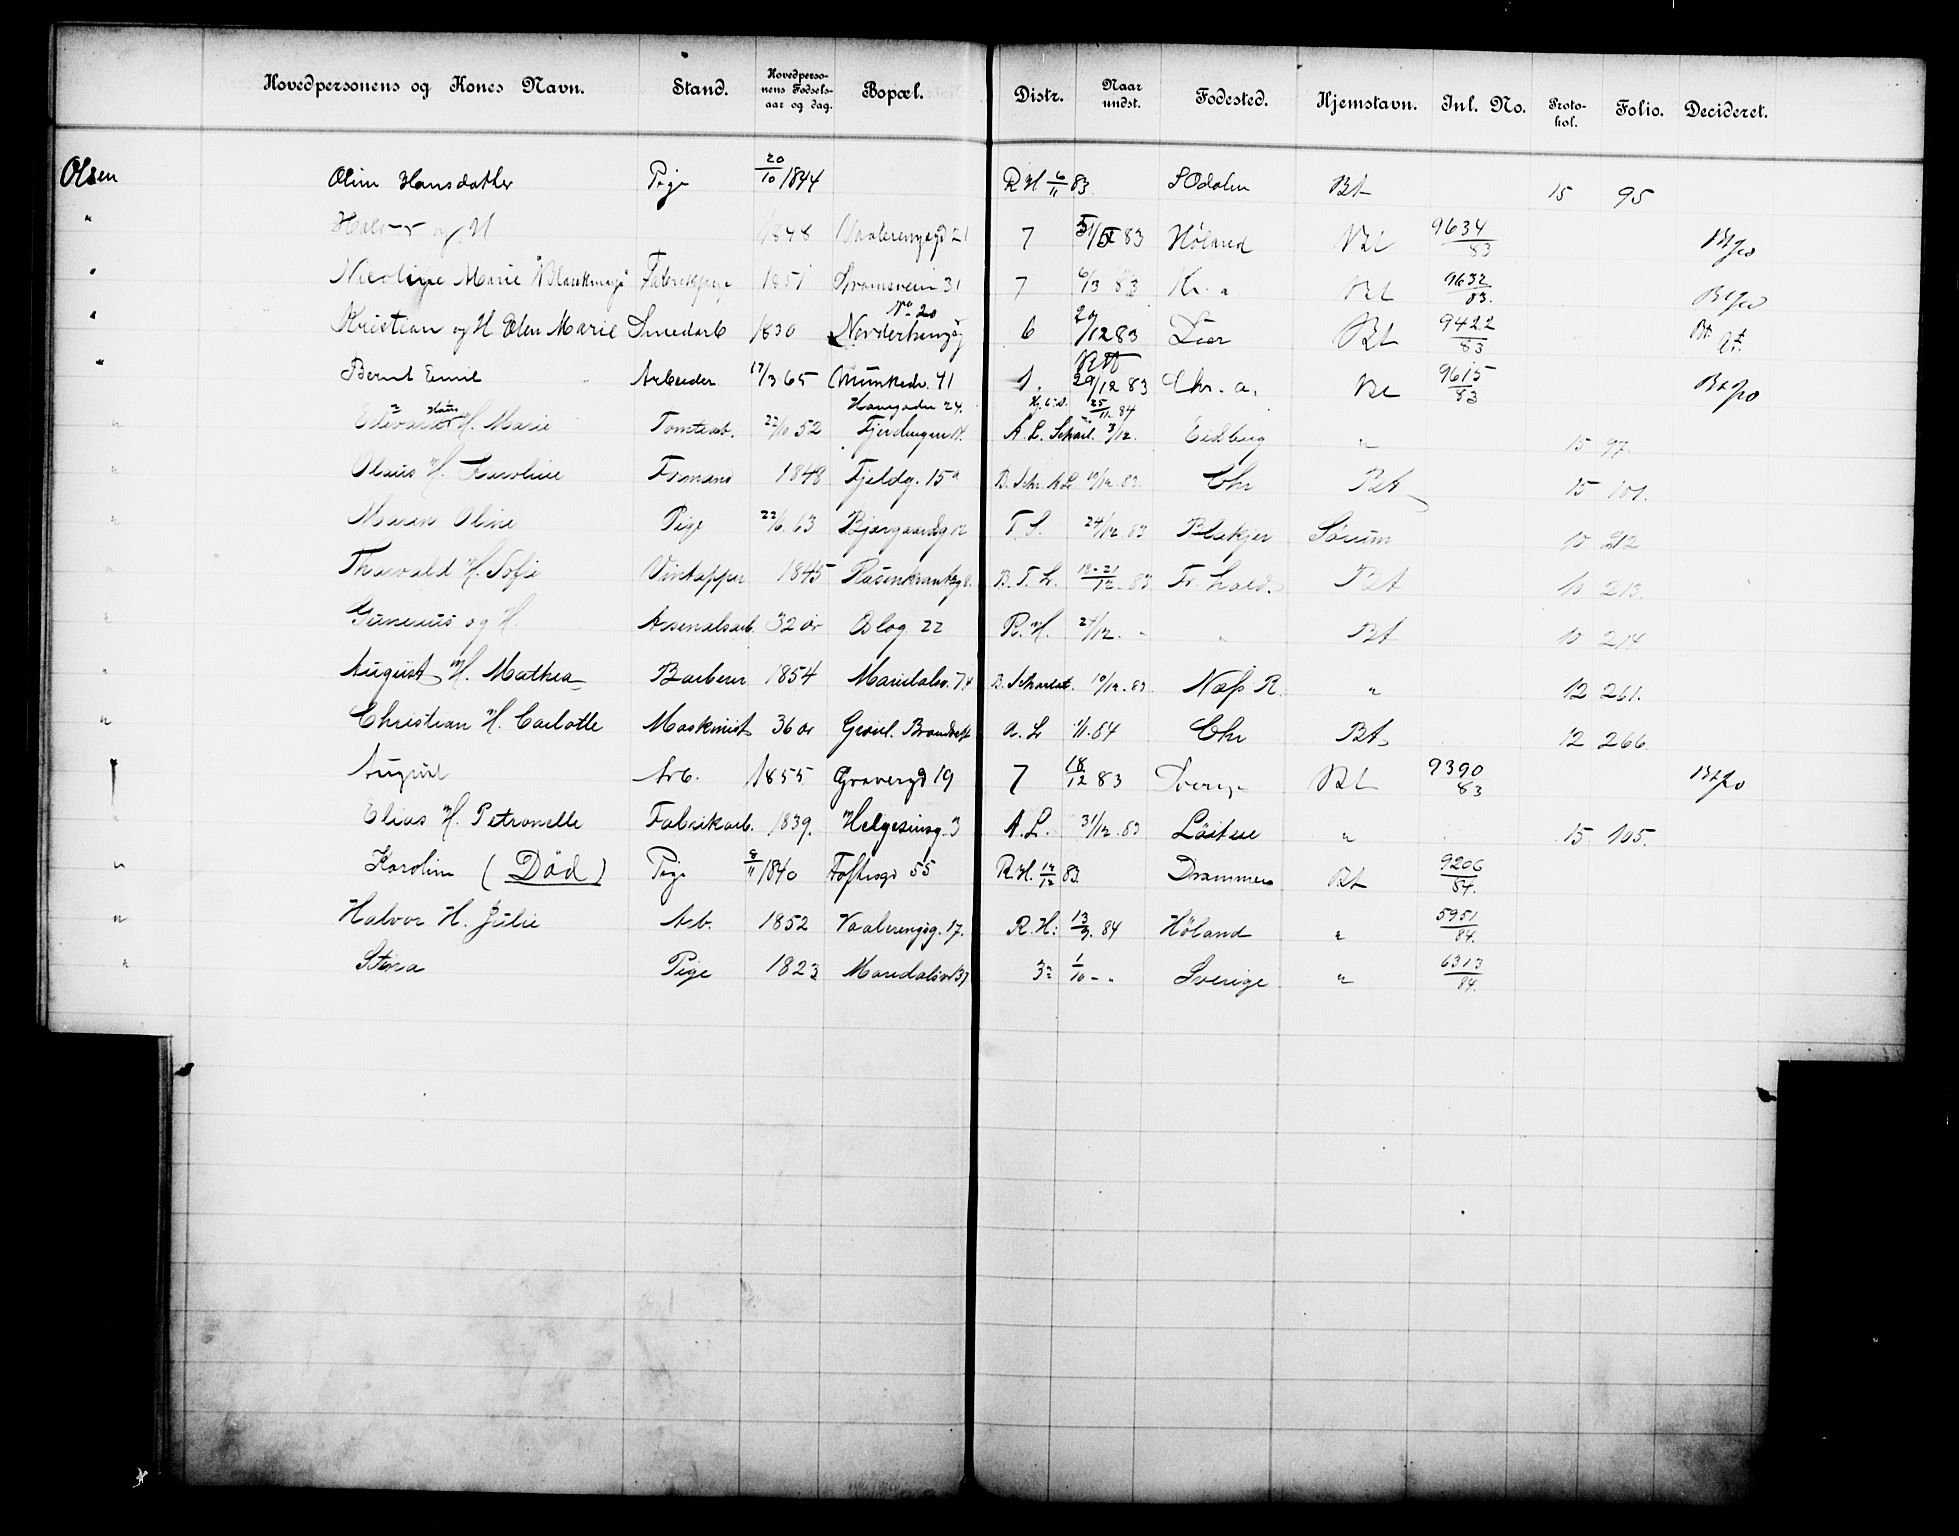 Hovedpersonens og Kones Navn. Stand. Hovedpersonens Fødselsaar og dag. Bopæl. Distr. Naar undst. Fødested. Hjemstavn. Inl. No. Protokol. Folio. Decideret.
Olsen Oline Hansdatter Pige 20/10 1844 R H 6/11 83 S Odalen Bt 15 95
" og H 1848 Vaalerengagd 21 7 83 Høland Bt 9634/83
" Marie Fabrikpige 1851 Strømsvein 31 7 6/13 83 Kr. a Bt 9632/83.
" Kristian og H Olen Marie Smedarb 1830 No 20 6 29/12 83 Lier Bt 9422/83 Bt
" Bernt Emil Arbeider 17/3 65 Munkedv. 41 1. 29/12 83 Chr. a. Bt 9615/83
" Edvard Hans H. Marie Tomtearb. 22/10 52 Havegaden 24. Fjerdingen 14. A. L. 25/11. 84 3/12. Eidsberg " 15 97.
" Olaus m H. Karoline Formand 1848 Fjeldg. 15a 10/12. 83. Chr Bt 15 101.
" Maren Oline Pige 22/6. 63 Bjergaardsg 12 T. S. 24/12. 83 Blakjer Sørum 10 212
" Thorvald m H. Sofie Vintapper 1845 Rosenkrantzg 8. B. T. L. 18-21/12. 83 Fr. hald. Bt 10 213.
" Gunerius og H. Arsenalsarb. 32 år Blog. 22 R. H. 24/12. " " Bt 10 214.
" August m H. Mathea Barberer 1854 Maridalsv. 74 10/12. 83 Næs R. " 12 261.
" Christian m H. Carlotte Maskinist 36 år A. L 1/1. 84 Chr Bt 12 266.
" August Arb. 1855 Gravergd 19 7 18/12 83 Sverige Bt 9390/83
" Elias m H. Petronelle Fabrikarb. 1839. Helgesensg. 3 A. L. 31/12. 83 Löiten " 15 105.
" Karolin (Död) Pige 8/11 1840 Toftesgd 55 R. H. 12/12 83. Drammen Bt 9206/84.
" Halvor H. Julie Arb. 1852 Vaalerengsg. 17. R. H: 13/9. 84 Höland " 5951/84.
" Stina Pige 1823 Maridalsv 37 3= 1/10 - " Sverige " 6313/84.